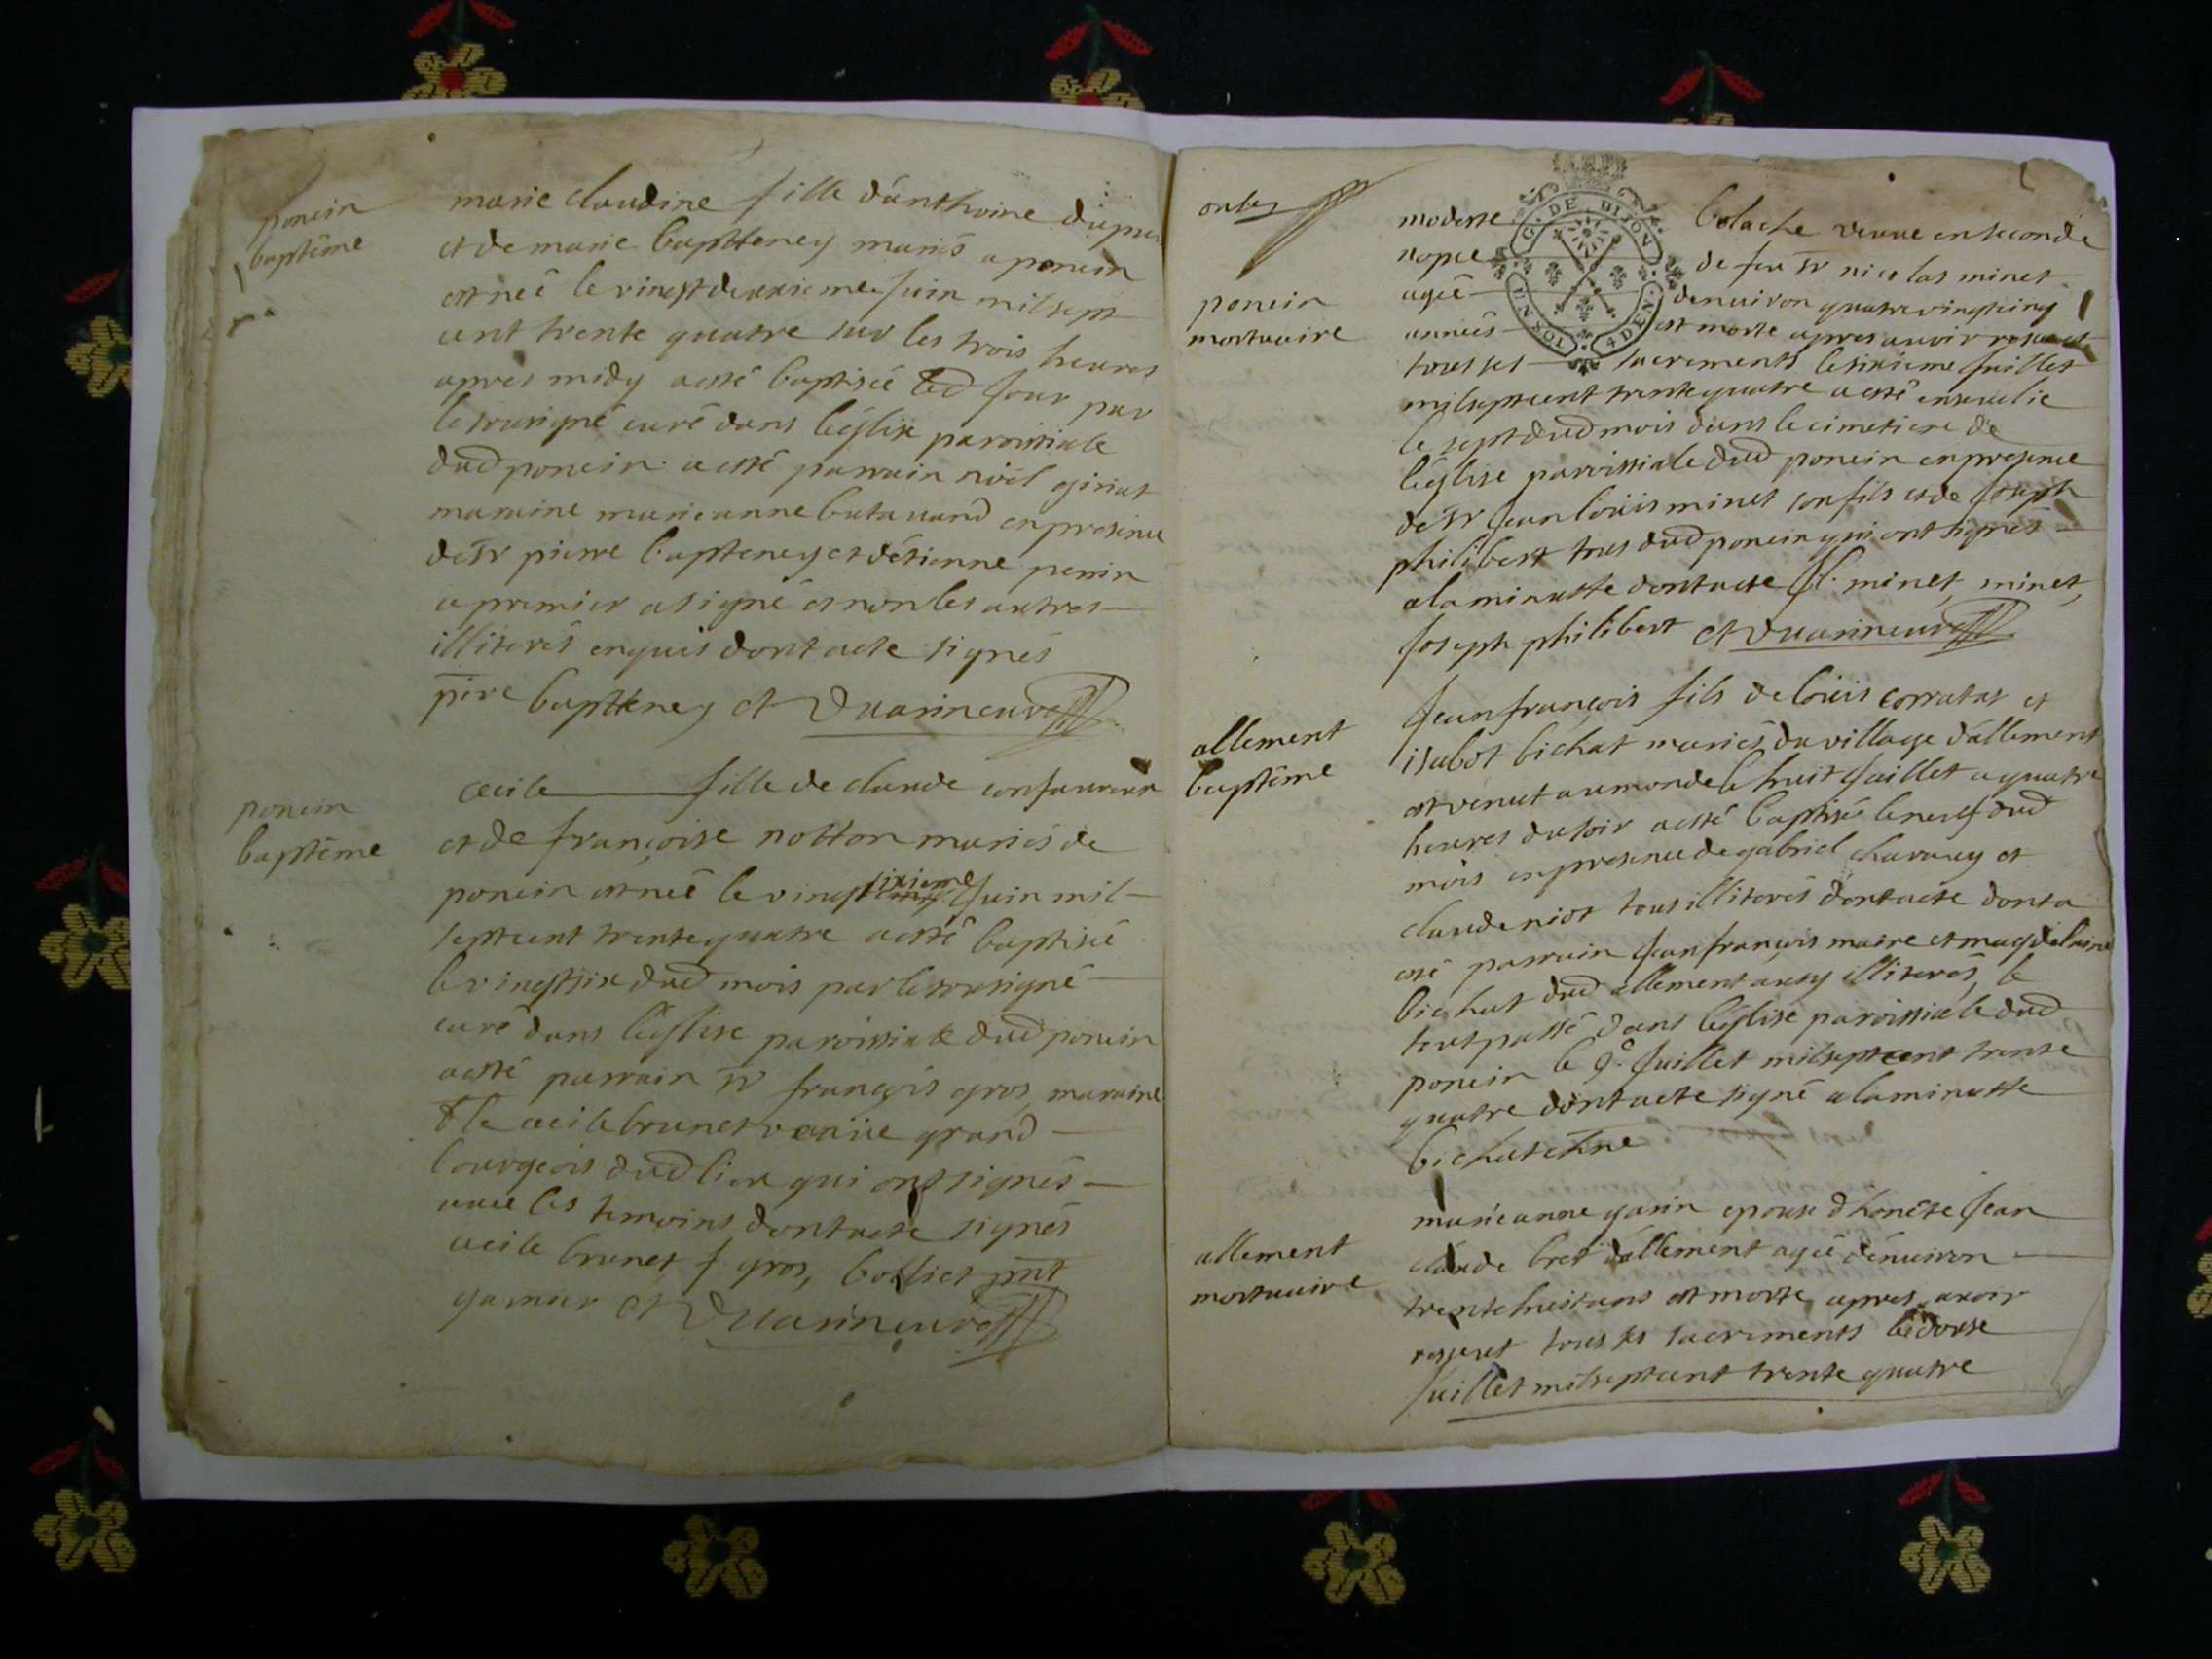 poncin
baptême
marie claudine fille d'anthoine
et de marie baptteney mariés a poncin
est neé le vingt deuxieme Juin mil sept
cent trente quatre sur les trois heures
apres midy a esté baptiseé led Jour par
le sousigné curé dans l'église paroissiale
dud poncin a esté parrain noël giriat
maraine marie anne batauand en presence
de sr pierre baptteney et d'etienne perrin
ce premier a signé et non les autres
illiterés enquis dont acte signés
pire baptteney et Duarineuve
poncin
baptême
cecile fille de claude confavreux
et de françoise notton mariés de
poncin est neé le vingt sixieme Juin mil
sept cent trente quatre a esté baptiseé
le vingt six dud mois par le sousigné
curé dans l'église paroissiale dud poncin
a esté parrain sr françois gros, maraine
dlle cecile brunet grand
bourgeois dud lieu qui ont signés
avec les temoins dont acte signés
cecile brunet f. gros, bolliet pnt
garnier et Duarineuve
G. DE. DIJON
UN SOL 4 DEN.
poncin
mortuaire
modeste bolache veuve en seconde
nopce de feu sr nicolas minet
ageé d'enuiron quatre vingt cinq
anneés est morte apres auoir
tous ses sacrements le sixieme Juillet
mil sept cent trente quatre a esté enseuelie
le sept dud mois dans le cimetiere de
l'église paroissiale dud poncin en presence
de sr Jean loüis minet son fils et de Joseph
philibert tous dud poncin qui ont signés
a la minutte dont acte Jl. minet, minet,
Joseph philibert et Duarineuve
allement
baptême
Jean françois fils de loüis corratat et
isabot bichat mariés du village d'allement
est venut au monde le huit Juillet a quatre
heures du soir a esté baptisé le neuf dud
mois en presence de gabriel charvey et
claude niot tous illiterés dont acte dont a
esté parrain Jean françois maire et magdelaine
bichat dud allement aussy illiterés, le
tout passé dans l'église paroissiale dud
poncin le 9e Juillet mil sept cent trente
quatre dont acte signé a la minutte
bichat
allement
mortuaire
marie anne garin epouse d'honête Jean
claude bret d'allement ageé d'enuiron
trente huit ans est morte, apres avoir
resceut tous ses sacrements le douse
Juillet mil sept cent trente quatre